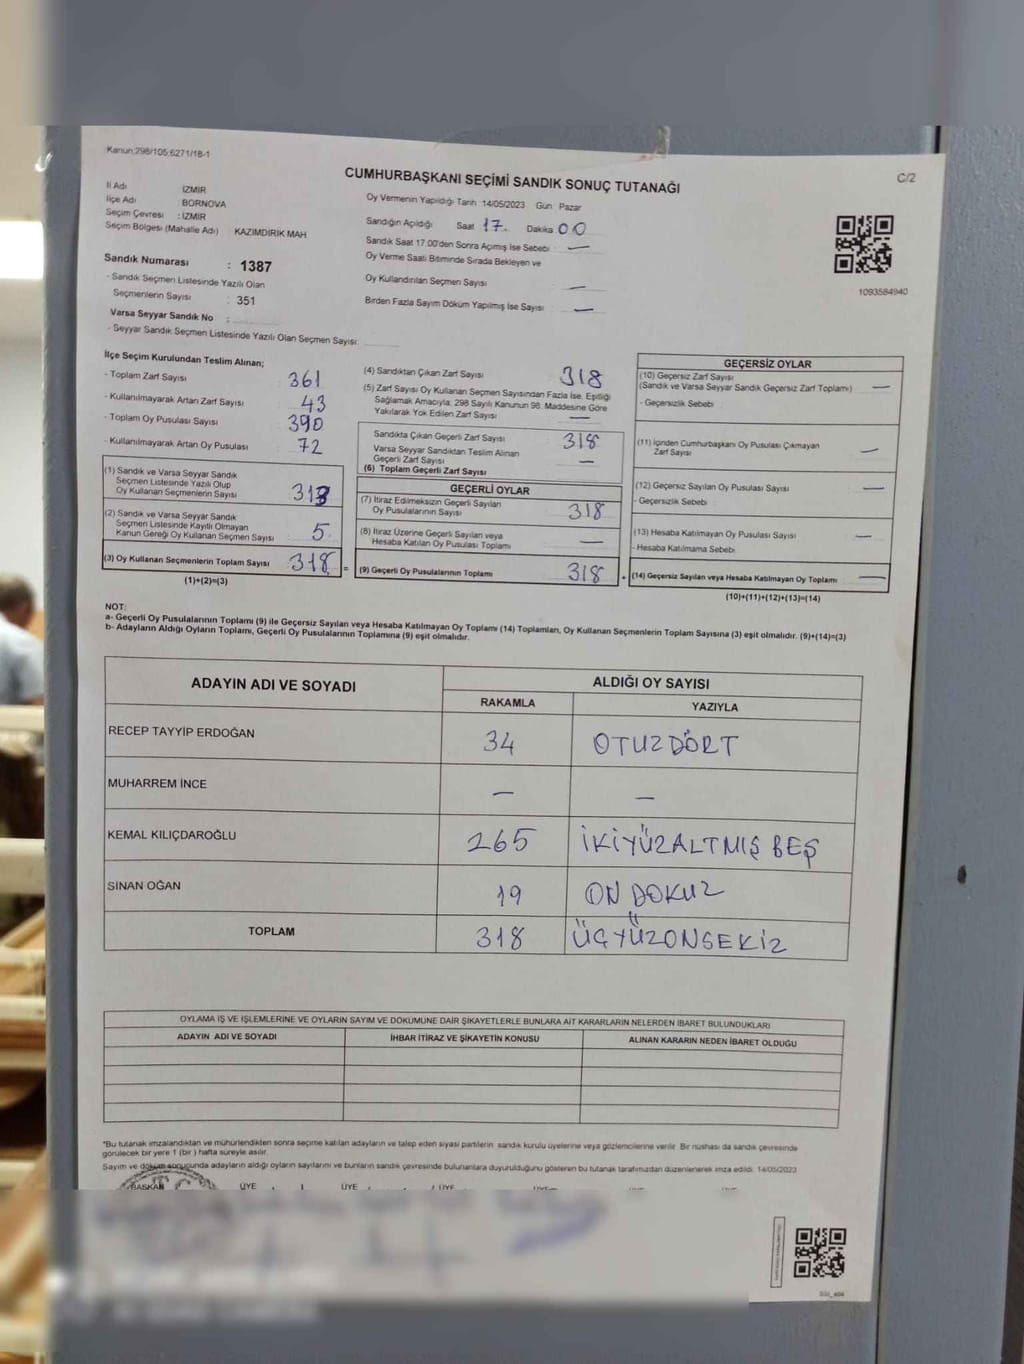 Kanun:298/105;6271/18-1
CUMHURBAŞKANI SEÇİMİ SANDIK SONUÇ TUTANAĞI
C/2
İl Adı İZMİR
İlçe Adı BORNOVA
Seçim Çevresi : İZMİR
Seçim Bölgesi (Mahalle Adı) KAZIMDİRİK MAH.
Sandık Numarası : 1387
- Sandık Seçmen Listesinde Yazılı Olan
Seçmenlerin Sayısı : 351
Varsa Seyyar Sandık No :
- Seyyar Sandık Seçmen Listesinde Yazılı Olan Seçmen Sayısı:
Oy Vermenin Yapıldığı Tarih 14/05/2023 Gün Pazar
Sandığın Açıldığı Saat 17. Dakika 00
Sandık Saat 17:00'den Sonra Açımış İse Sebebi : —
Oy Verme Saati Bitiminde Sırada Bekleyen ve
Oy Kullandırılan Seçmen Sayısı : —
Birden Fazla Sayım Döküm Yapılmış İse Sayısı : —
1093584940
İlçe Seçim Kurulundan Teslim Alınan;
- Toplam Zarf Sayısı 361
- Kullanılmayarak Artan Zarf Sayısı 43
- Toplam Oy Pusulası Sayısı 390
- Kullanılmayarak Artan Oy Pusulası 72
(1) Sandık ve Varsa Seyyar Sandık
Seçmen Listesinde Yazılı Olup
Oy Kullanan Seçmenlerin Sayısı 313
(2) Sandık ve Varsa Seyyar Sandık
Seçmen Listesinde Kayıtlı Olmayan
Kanun Gereği Oy Kullanan Seçmen Sayısı 5
(3) Oy Kullanan Seçmenlerin Toplam Sayısı 318 =
(1)+(2)=(3)
(4) Sandıktan Çıkan Zarf Sayısı 318
(5) Zarf Sayısı Oy Kullanan Seçmen Sayısından Fazla İse, Eşitliği
Sağlamak Amacıyla, 298 Sayılı Kanunun 98. Maddesine Göre
Yakılarak Yok Edilen Zarf Sayısı —
Sandıkta Çıkan Geçerli Zarf Sayısı 318
Varsa Seyyar Sandıktan Teslim Alınan
Geçerli Zarf Sayısı —
(6) Toplam Geçerli Zarf Sayısı
GEÇERLİ OYLAR
(7) İtiraz Edilmeksizin Geçerli Sayılan
Oy Pusulalarının Sayısı 318
(8) İtiraz Üzerine Geçerli Sayılan veya
Hesaba Katılan Oy Pusulası Toplamı —
(9) Geçerli Oy Pusulalarının Toplamı 318 +
GEÇERSİZ OYLAR
(10) Geçersiz Zarf Sayısı
(Sandık ve Varsa Seyyar Sandık Geçersiz Zarf Toplamı) —
- Geçersizlik Sebebi
(11) İçinden Cumhurbaşkanı Oy Pusulası Çıkmayan
Zarf Sayısı —
(12) Geçersiz Sayılan Oy Pusulası Sayısı —
- Geçersizlik Sebebi
(13) Hesaba Katılmayan Oy Pusulası Sayısı —
- Hesaba Katılmama Sebebi
(14) Geçersiz Sayılan veya Hesaba Katılmayan Oy Toplamı —
(10)+(11)+(12)+(13)=(14)
NOT:
a- Geçerli Oy Pusulalarının Toplamı (9) ile Geçersiz Sayılan veya Hesaba Katılmayan Oy Toplamı (14) Toplamları, Oy Kullanan Seçmenlerin Toplam Sayısına (3) eşit olmalıdır. (9)+(14)=(3)
b- Adayların Aldığı Oyların Toplamı, Geçerli Oy Pusulalarının Toplamına (9) eşit olmalıdır.
ADAYIN ADI VE SOYADI ALDIĞI OY SAYISI
RAKAMLA YAZIYLA
RECEP TAYYİP ERDOĞAN 34 OTUZDÖRT
MUHARREM İNCE — —
KEMAL KILIÇDAROĞLU 265 İKİYÜZALTMIŞ BEŞ
SİNAN OĞAN 19 ON DOKUZ
TOPLAM 318 ÜÇYÜZONSEKİZ
OYLAMA İŞ VE İŞLEMLERİNE VE OYLARIN SAYIM VE DÖKÜMÜNE DAİR ŞİKAYETLERLE BUNLARA AİT KARARLARIN NELERDEN İBARET BULUNDUKLARI
ADAYIN ADI VE SOYADI İHBAR İTİRAZ VE ŞİKAYETİN KONUSU ALINAN KARARIN NEDEN İBARET OLDUĞU
*Bu tutanak imzalandıktan ve mühürlendikten sonra seçime katılan adayların ve talep eden siyasi partilerin sandık kurulu üyelerine veya gözlemcilerine verilir. Bir nüshası da sandık çevresinde
görülecek bir yere 1 (bir) hafta süreyle asılır.
Sayım ve döküm sonucunda adayların aldığı oyların sayılarını ve bunların sandık çevresinde bulunanlara duyurulduğunu gösteren bu tutanak tarafımızdan düzenlenerek imza edildi. 14/05/2023
BAŞKAN ÜYE ÜYE ÜYE